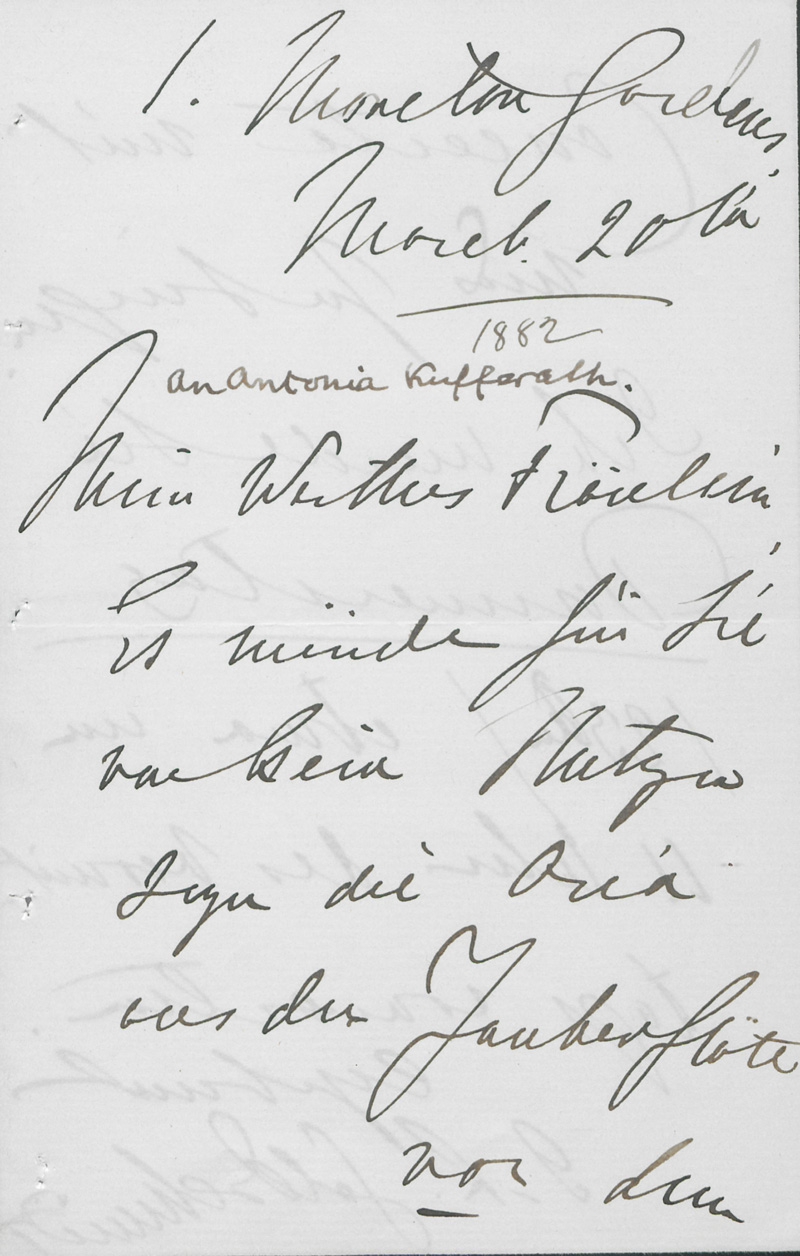 1. Moreton Gardens,
March 20th
1882
an Antonia Kufferath.
Mein Werthes Fräulein,
Es würde für Sie
von kein Nutzen
sein die Aria
aus der Zauberflöte
vor dem